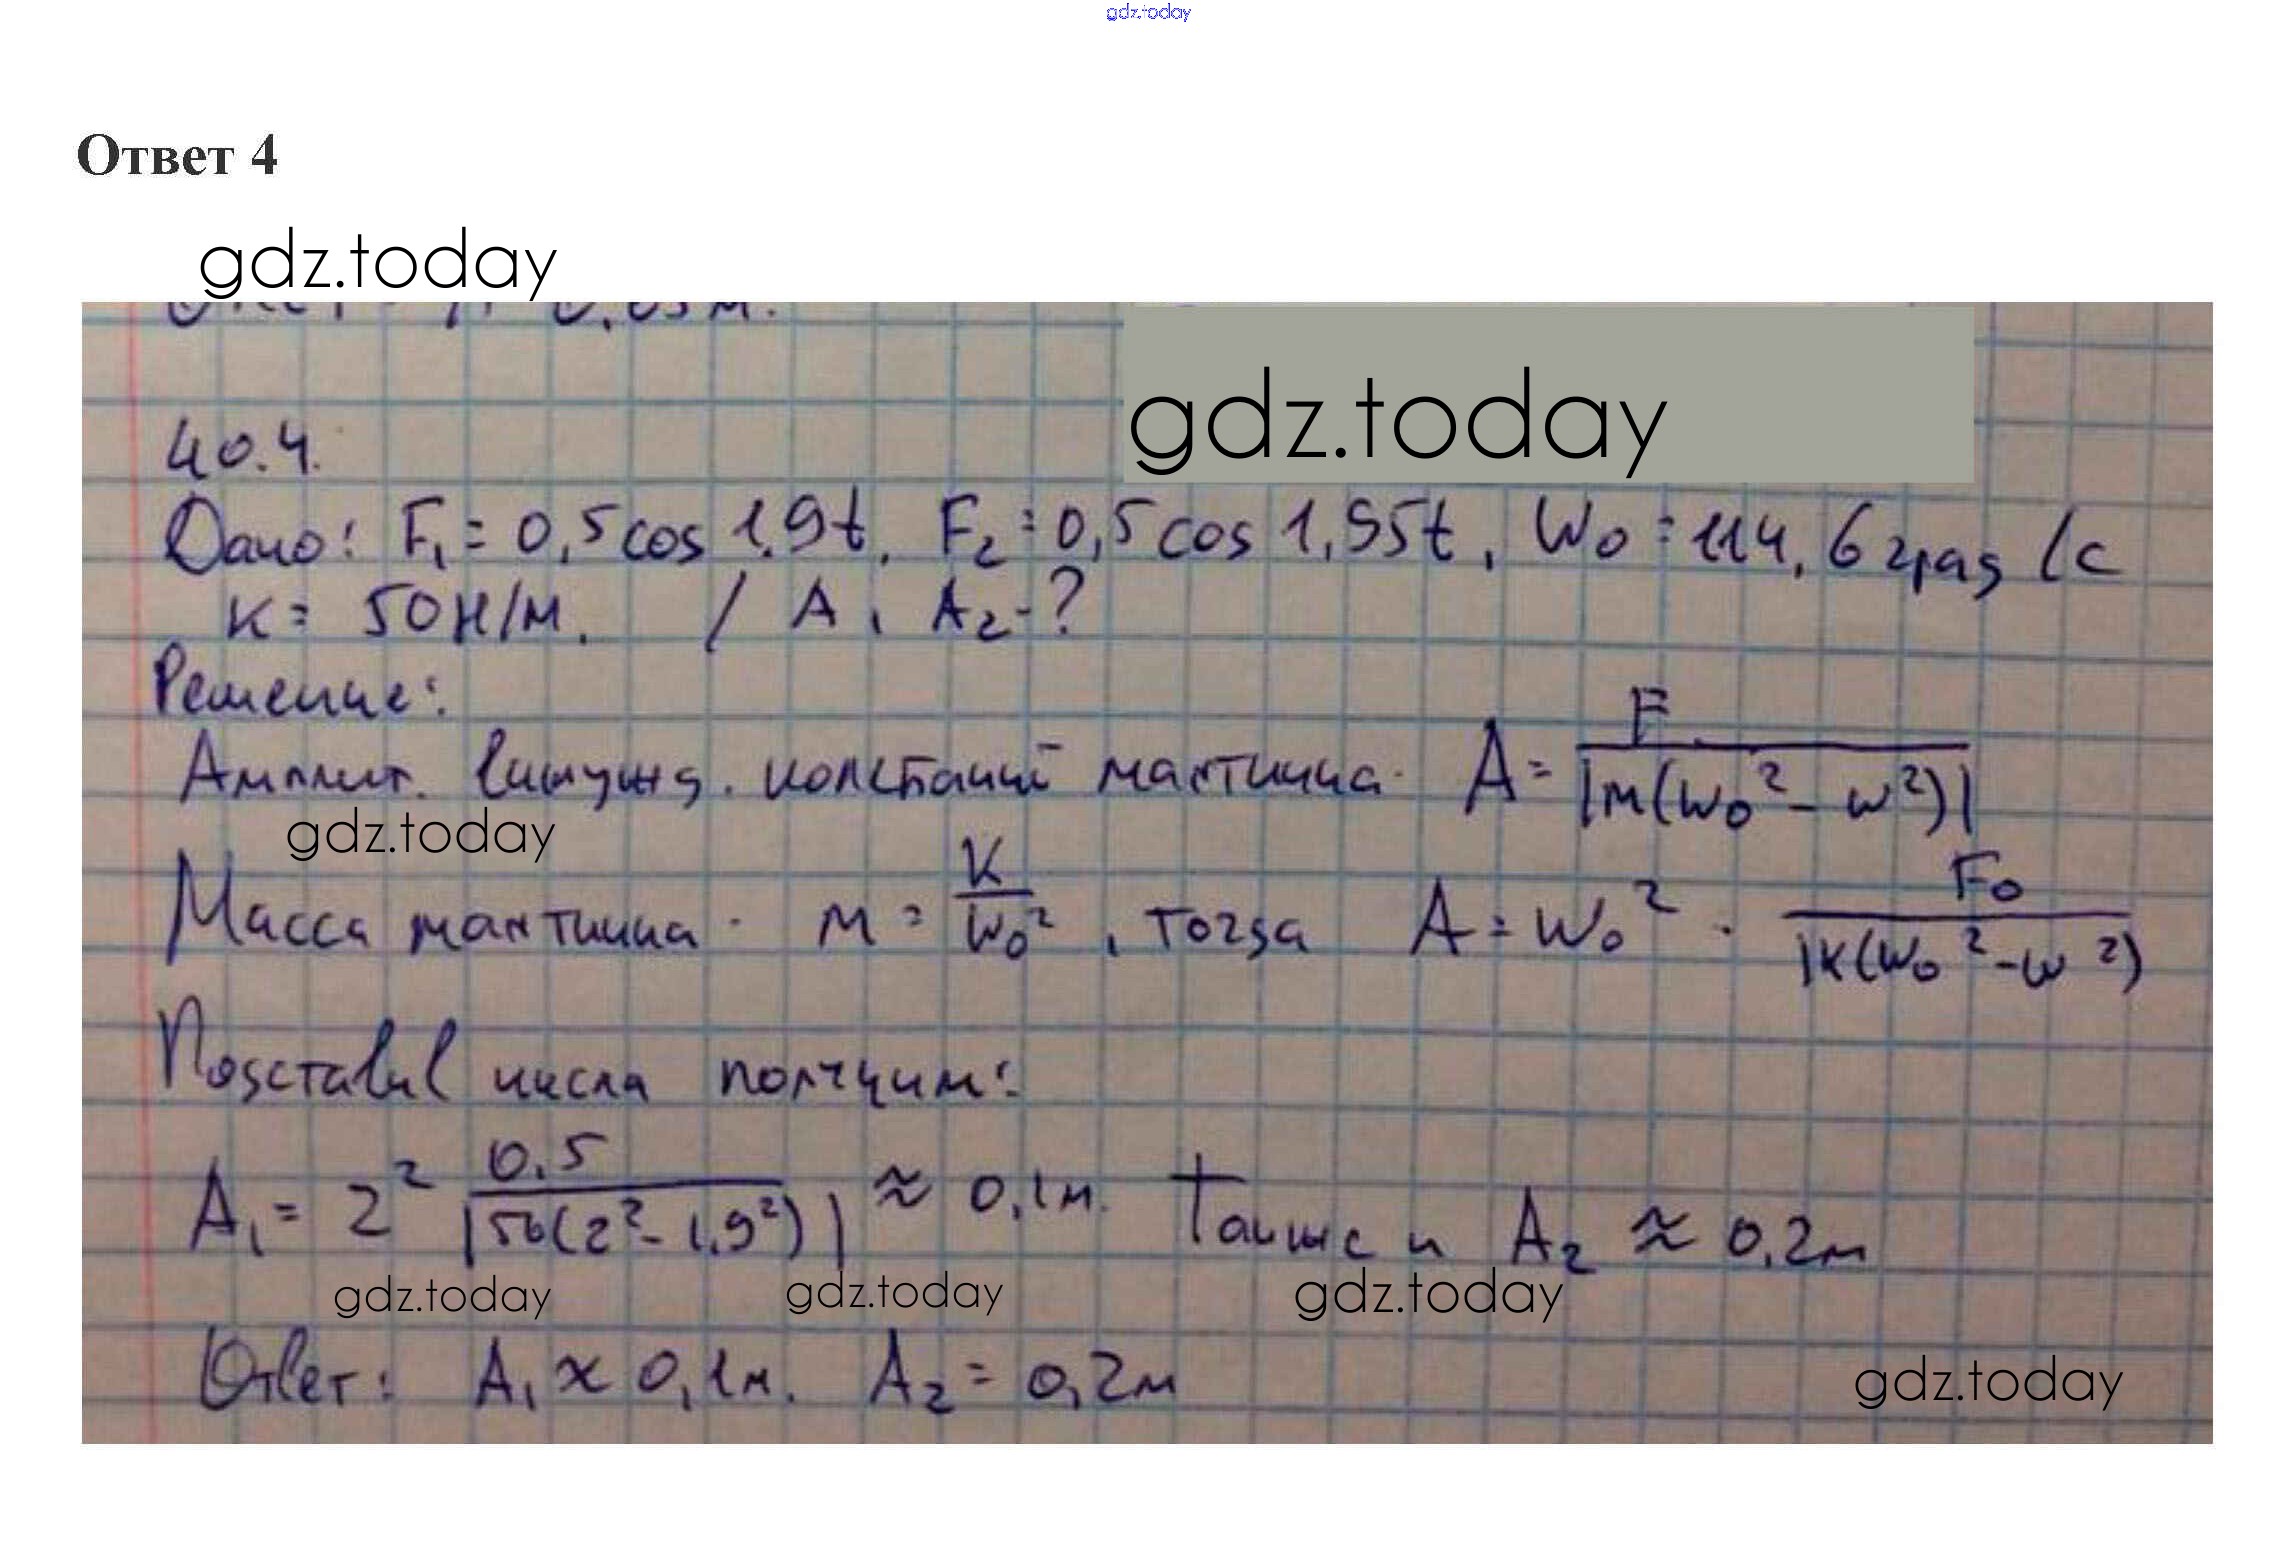 gdz.today
Ответ 4
gdz.today
0,05м.
gdz.today
40.4.
Дано: F₁ = 0,5cos 1,9t, F₂ = 0,5cos 1,95t, W₀ = 114,6 град/с
к = 50Н/м. / A₁ A₂ - ?
Решение:
Амплит. вынужд. колебаний маятника A = F / |м(w₀² - w²)|
gdz.today
Масса маятника м = К / W₀², тогда A = W₀² · F₀ / |к(w₀² - w²)
Подставив числа получим:
A₁ = 2² 0,5 / |50(2² - 1,9²)| ≈ 0,1м. Также и A₂ ≈ 0,2м
gdz.today gdz.today gdz.today
Ответ: A₁ ≈ 0,1м. A₂ = 0,2м
gdz.today